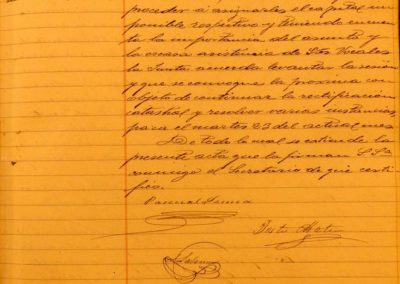 proceder á asignarles el capital im-
ponible respectivo y teniendo encuen-
ta la importancia del asunto y
la escasa asistencia de Sres Vocales
la Junta acuerda levantar la sesión
y que se convoque la proxima con
objeto de continuar la rectificación
catastral y resolver varias instancias,
para el martes 23 del actual mes
De todo lo cual se extiende la
presente acta que la firman S.Sa
conmigo el Secretario de que certi-
fico.
Pascual
Justo